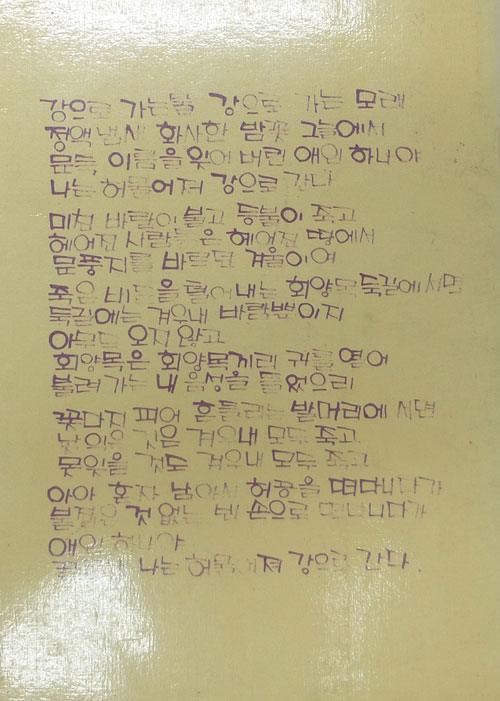 강으로 가는 강으로 가는 모래
정액냄새 화사한 밤꽃 그늘에서
문득 이름을 잊어 버린 애인 하나야
나는 허물어져 강으로 간다
미친 바람이 불고 등불이 죽고
헤어진 사람들은 헤어진 땅에서
문풍지를 바르던 겨울이여
죽은 비듬을 털어내는 회양목 둑길에 서면
둑길에는 겨우내 바람뿐이지
아무도 오지 않고
회양목은 회양목끼리 귀를 열어
불려가는 내 음성을 들었으리
꽃다지 피어 흔들리는 밭머리에 서면
낯익은 것은 겨우내 모두 죽고
못잊을 것도 겨우내 모두 죽고
아아 혼자 남아서 허공을 떠다니다가
붙잡은 것 없는 빈 손으로 떠다니다가
애인 하나야
나는 허물어져 강으로 간다.